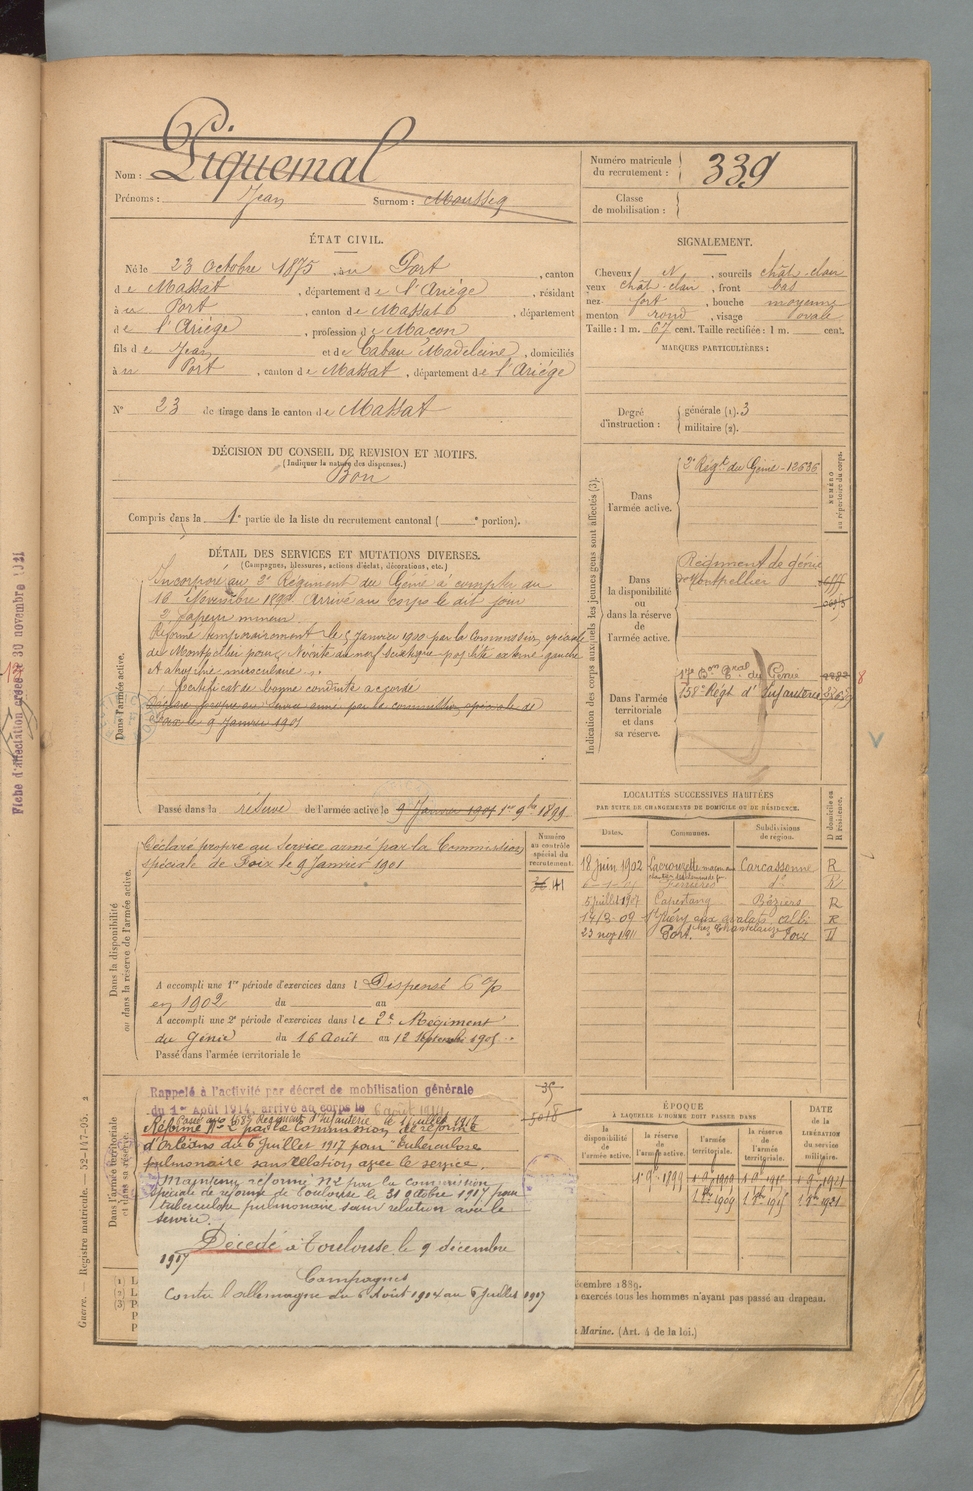 Nom : Piquemal
Prénoms : Jean Surnom : Mousseq
Numéro matricule du recrutement : 339
Classe de mobilisation :
ÉTAT CIVIL.
Né le 23 Octobre 1875, à Port, canton
de Massat, département de l'Ariège, résidant
à Port, canton de Massat, département
de l'Ariège, profession de Maçon
fils de Jean et de Cabau Madeleine, domiciliés
à Port, canton de Massat, département de l'Ariège
N° 23 de tirage dans le canton de Massat
SIGNALEMENT.
Cheveux N, sourcils chât-clair
yeux chât-clair, front bas
nez fort, bouche moyenne
menton rond, visage ovale
Taille : 1 m. 67 cent. Taille rectifiée : 1 m. cent.
MARQUES PARTICULIÈRES :
Degré d'instruction : générale (1). 3
militaire (2).
DÉCISION DU CONSEIL DE REVISION ET MOTIFS.
(Indiquer la nature des dispenses.)
Bon
Compris dans la 1e partie de la liste du recrutement cantonal ( e portion).
DÉTAIL DES SERVICES ET MUTATIONS DIVERSES.
(Campagnes, blessures, actions d'éclat, décorations, etc.)
Dans l'armée active.
Incorporé au 2e Régiment du Génie à compter du
16 Novembre 1896 Arrivé au corps le dit jour
2e sapeur mineur
Réformé temporairement le 5 Janvier 1900 par la Commission spéciale
de Montpellier pour Névrite du nerf sciatique poplité externe gauche
et atrophie musculaire.
Certificat de bonne conduite accordé
Déclaré propre au Service armé par la commission spéciale de
Foix le 9 Janvier 1901
Passé dans la réserve de l'armée active le 9 Janvier 1901 1er 9bre 1899
Indication des corps auxquels les jeunes gens sont affectés (3).
NUMÉRO au répertoire du corps.
Dans l'armée active.
2e Régt du Génie - 12636
Dans la disponibilité ou dans la réserve de l'armée active.
Régiment de génie
de Montpellier
Dans l'armée territoriale et dans sa réserve.
17e Bon Tal du Génie
158e Régt d'Infanterie
Dans la disponibilité ou dans la réserve de l'armée active.
Déclaré propre au Service armé par la Commission
spéciale de Foix le 9 Janvier 1901
Numéro au contrôle spécial du recrutement.
A accompli une 1re période d'exercices dans l Dispensé 6 %
en 1902 du au
A accompli une 2e période d'exercices dans le 2e Régiment
du Génie du 16 Août au 12 Septembre 1905
Passé dans l'armée territoriale le
LOCALITÉS SUCCESSIVES HABITÉES
PAR SUITE DE CHANGEMENTS DE DOMICILE OU DE RÉSIDENCE.
Dates. Communes. Subdivisions de région. D domicile ou R résidence.
18 Juin 1902 Lacrouzette Carcassonne R
Ferrières do R
5 Juillet 1907 Capestang Béziers R
14-3-09 St Juéry aux avalats Albi R
23 nov 1911 Port. Foix D
Dans l'armée territoriale et dans sa réserve.
Rappelé à l'activité par décret de mobilisation générale
du 1er Août 1914, arrivé au corps le 6 août 1914
Passé au 158e Régiment d'Infanterie le 1 juillet 1916
Réformé N° 2 par la Commission de réforme
d'Orléans du 6 Juillet 1917 pour tuberculose
pulmonaire sans relation avec le service.
Maintenu réformé N°2 par la commission
spéciale de réforme de Toulouse le 31 octobre 1917 pour
tuberculose pulmonaire sans relation avec le
service.
Décédé à Toulouse le 9 décembre
1917
Campagnes
Contre l'allemagne du 6 Août 1914 au 6 Juillet 1917
ÉPOQUE
À LAQUELLE L'HOMME DOIT PASSER DANS
la disponibilité de l'armée active. la réserve de l'armée active. l'armée territoriale. la réserve de l'armée territoriale.
DATE de la LIBÉRATION du service militaire.
décembre 1889.
exercés tous les hommes n'ayant pas passé au drapeau.
Marine. (Art. 4 de la loi.)
Guerre. Registre matricule. — 52-147-95. 2
Fiche d'affectation créée le 30 novembre 1921